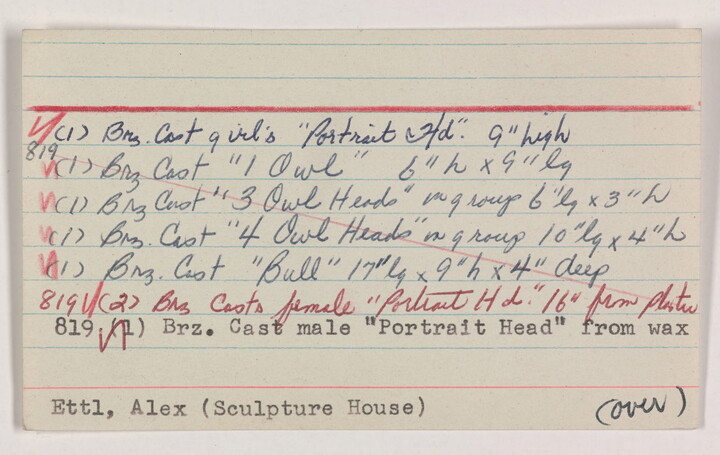 (1) Brz. Cast girl's "Portrait Hd". 9" high
819
(1) Brz Cast "1 Owl" 6" h x 9" lg
(1) Brz Cast "3 Owl Heads" in group 6" lg x 3" h
(1) Brz. Cast "4 Owl Heads" in group 10" lg x 4" h
(1) Brz. Cast "Bull" 17" lg x 9" h x 4" deep
819 (2) Brz Casts female "Portrait Hd." 16" from plaster
819 (1) Brz. Cast male "Portrait Head" from wax
Ettl, Alex (Sculpture House)
(over)